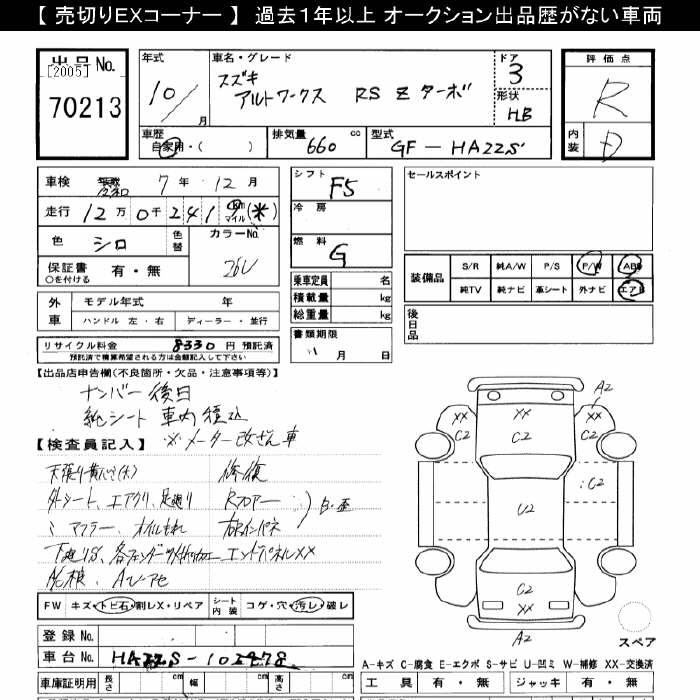 【 売切りEXコーナー 】 過去1年以上 オークション出品歴がない車両
出品No.
[2005]
70213
年式
10/
月
車名・グレード
スズキ
アルトワークス RS Z ターボ
ドア
3
形状
HB
評価点
R
内装
D
車歴
自家用・( )
排気量
660 cc
型式
GF-HA22S
車検 令和 7年 12月
走行 12万0千241 km マイル (※)
色 シロ 色替 カラーNo. 26U
保証書 有・無
○を付ける
シフト F5
冷房
燃料 G
乗車定員 名
積載量 kg
総重量 kg
書類期限
月 日
セールスポイント
装備品 S/R 純A/W P/S P/W ABS
純TV 純ナビ 革シート 外ナビ エアB
後日品
外車 モデル年式 年
ハンドル 左・右 ディーラー・並行
リサイクル料金 8330 円 預託済
預託済で精算希望される方は金額記入して下さい
【出品店申告欄(不良箇所・欠品・注意事項等)】
ナンバー後日
純シート 車内積込
※メーター改ざん車
【検査員記入】
外シート、エアクリ、足廻り
マフラー、オイルもれ
修復
Rフロアー
右Rインパネ
エンドパネルXX
A2
XX
C2
XX
C2
XX
C2
C2
U2
C2
XX
A2
スペア
FW キズ・トビ石・割レX・リペア シート内装 コゲ・穴・汚レ・破レ
登録No.
車台No. HA22S-102478
A-キズ C-腐食 E-エクボ S-サビ U-凹ミ W-補修 XX-交換済
車庫証明用 長さ cm 幅 cm 高さ cm
工具 有・無 ジャッキ 有・無